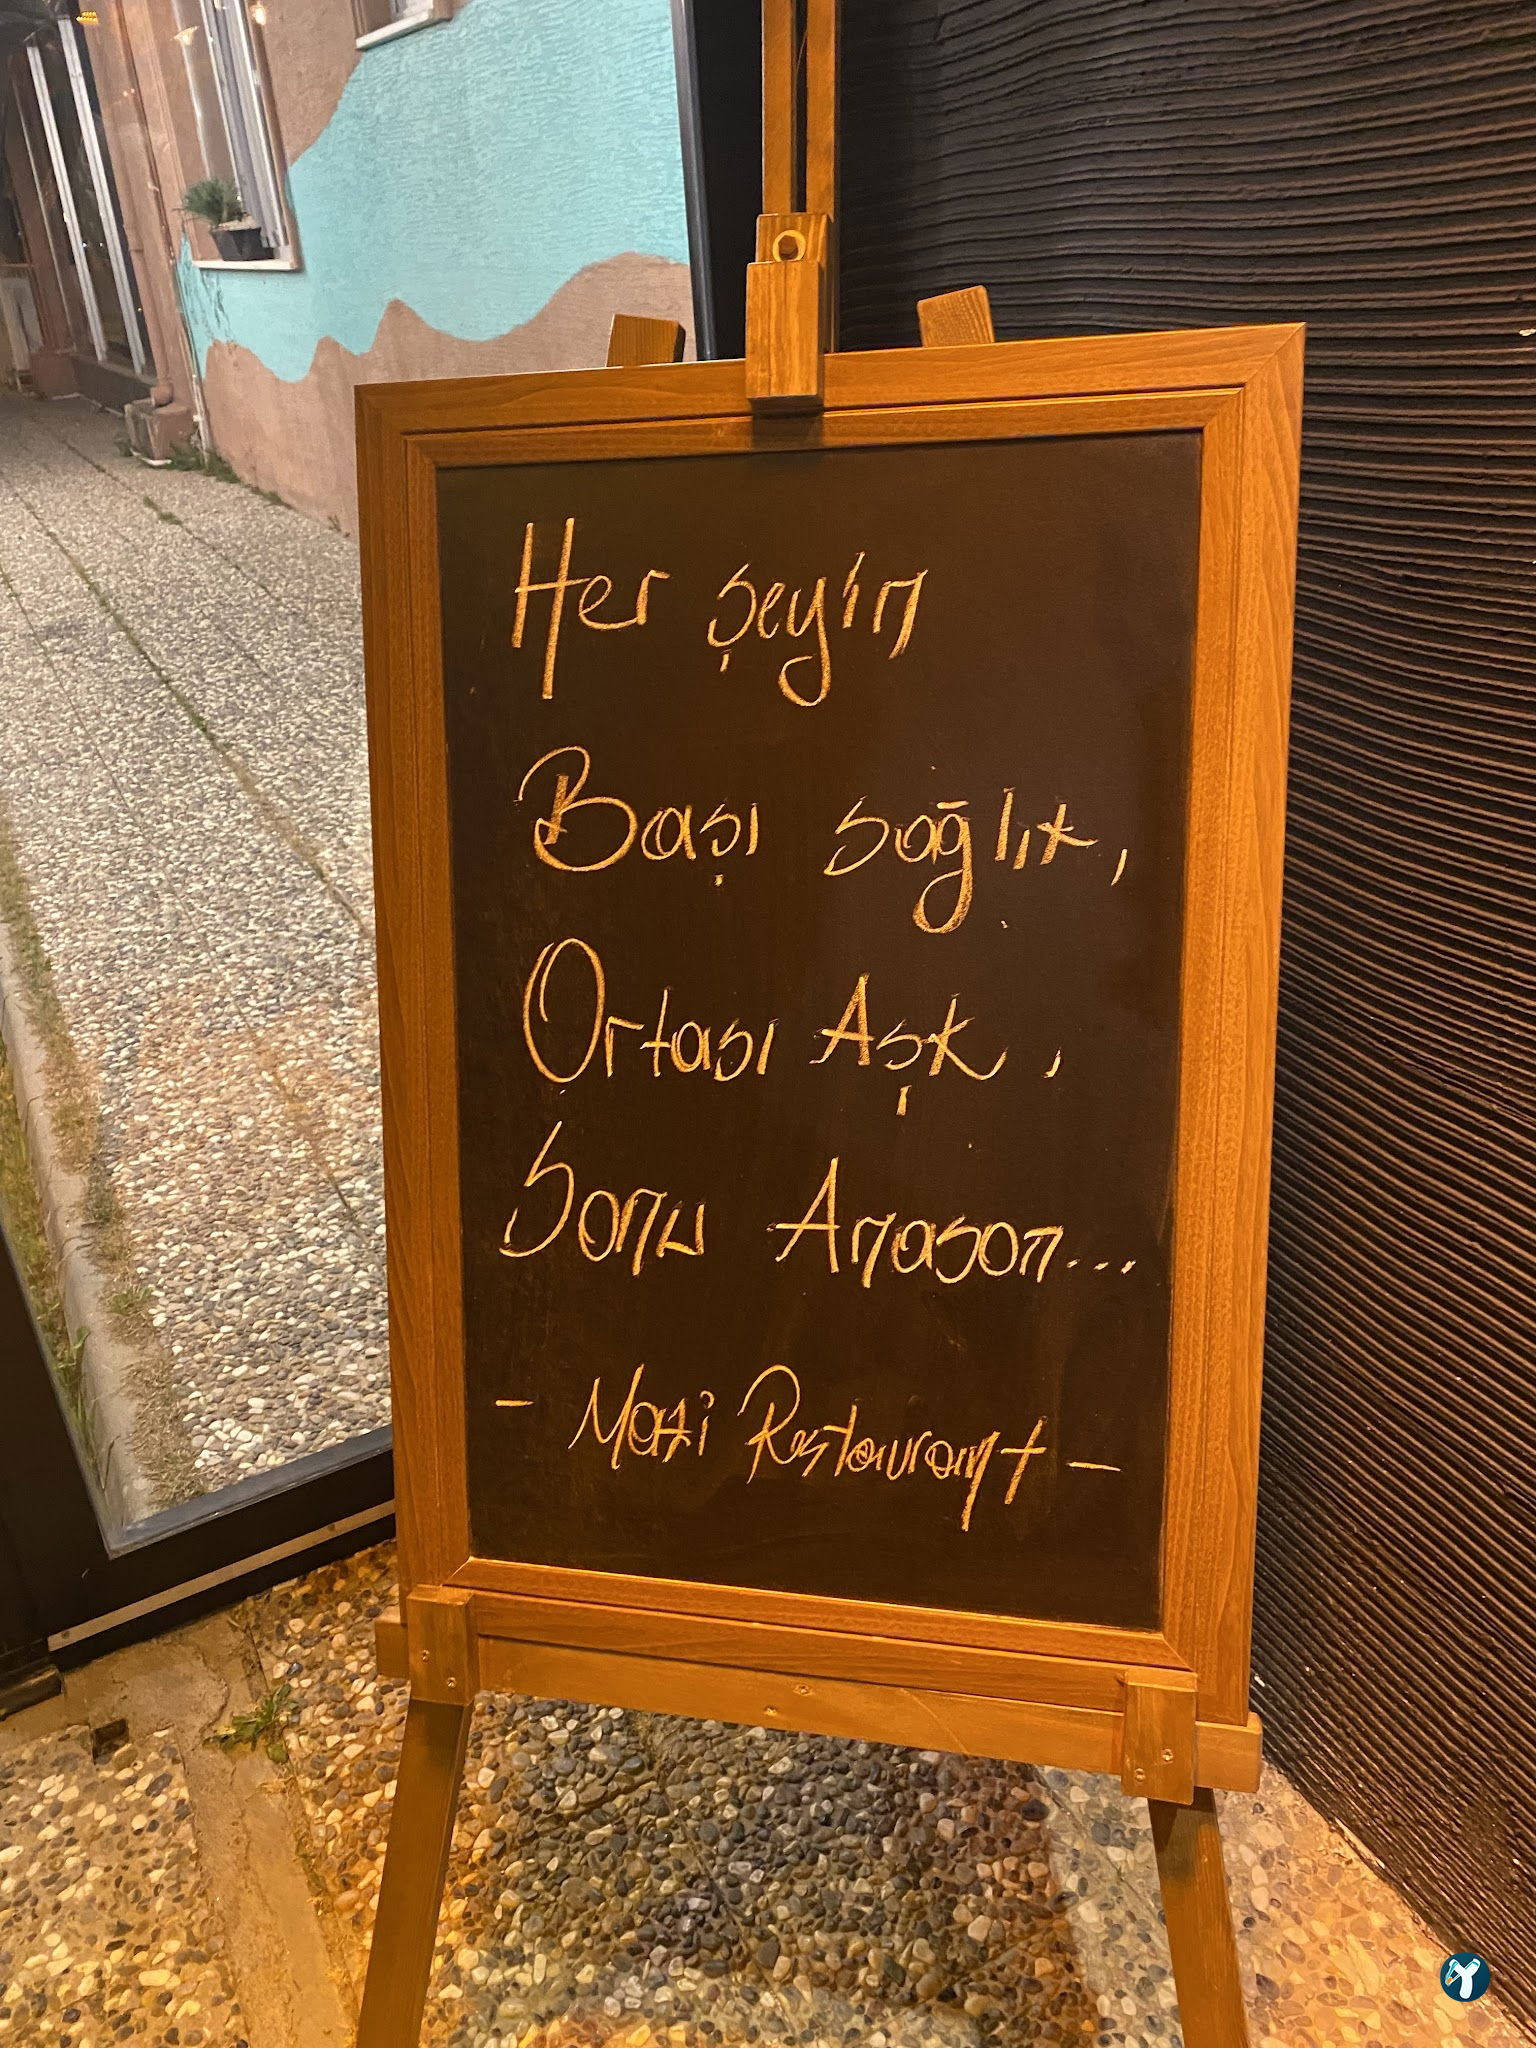 Her şeyin
Başı sağlık,
Ortası Aşk,
Sonu Anason...
- Mazi Restaurant -